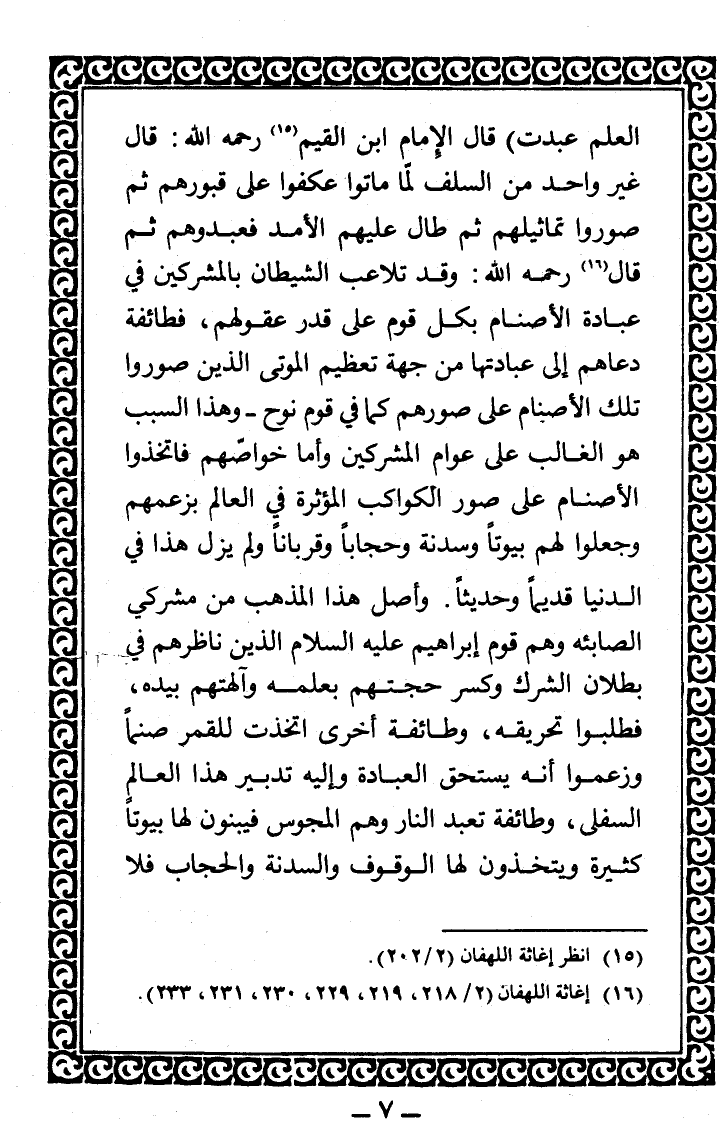 العلم عبدت) قال الإمام ابن القيم(١٥) رحمه الله: قال
غير واحد من السلف لمّا ماتوا عكفوا على قبورهم ثم
صوروا تماثيلهم ثم طال عليهم الأمد فعبدوهم ثم
قال(١٦) رحمه الله: وقد تلاعب الشيطان بالمشركين في
عبادة الأصنام بكل قوم على قدر عقولهم، فطائفة
دعاهم إلى عبادتها من جهة تعظيم الموتى الذين صوروا
تلك الأصنام على صورهم كما في قوم نوح - وهذا السبب
هو الغالب على عوام المشركين وأما خواصّهم فاتخذوا
الأصنام على صور الكواكب المؤثرة في العالم بزعمهم
وجعلوا لهم بيوتاً وسدنة وحجاباً وقرباناً ولم يزل هذا في
الدنيا قديماً وحديثاً. وأصل هذا المذهب من مشركي
الصابئه وهم قوم إبراهيم عليه السلام الذين ناظرهم في
بطلان الشرك وكسر حجتهم بعلمه وآلهتهم بيده،
فطلبوا تحريقه، وطائفة أخرى اتخذت للقمر صنماً
وزعموا أنه يستحق العبادة وإليه تدبير هذا العالم
السفلى، وطائفة تعبد النار وهم المجوس فيبنون لها بيوتاً
كثيرة ويتخذون لها الوقوف والسدنة والحجاب فلا
(١٥) انظر إغاثة اللهفان (٢/ ٢٠٢).
(١٦) إغاثة اللهفان (٢/ ٢١٨، ٢١٩، ٢٢٩، ٢٣٠، ٢٣١، ٢٣٣).
— ٧ —